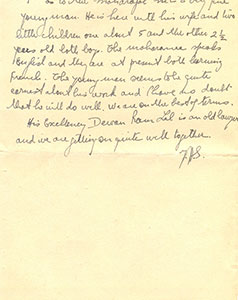 young man. He is here with his wife and two
little children one about 5 and the other 2½
years old both boys. The maharanee speaks
English and they are at present both learning
French. The young man seems to be quite
earnest about his work and I have no doubt
that he will do well. We are on the best of terms.
His Excellency Dewan Ram Lil is an old lawyer
and we are getting on quite well together.